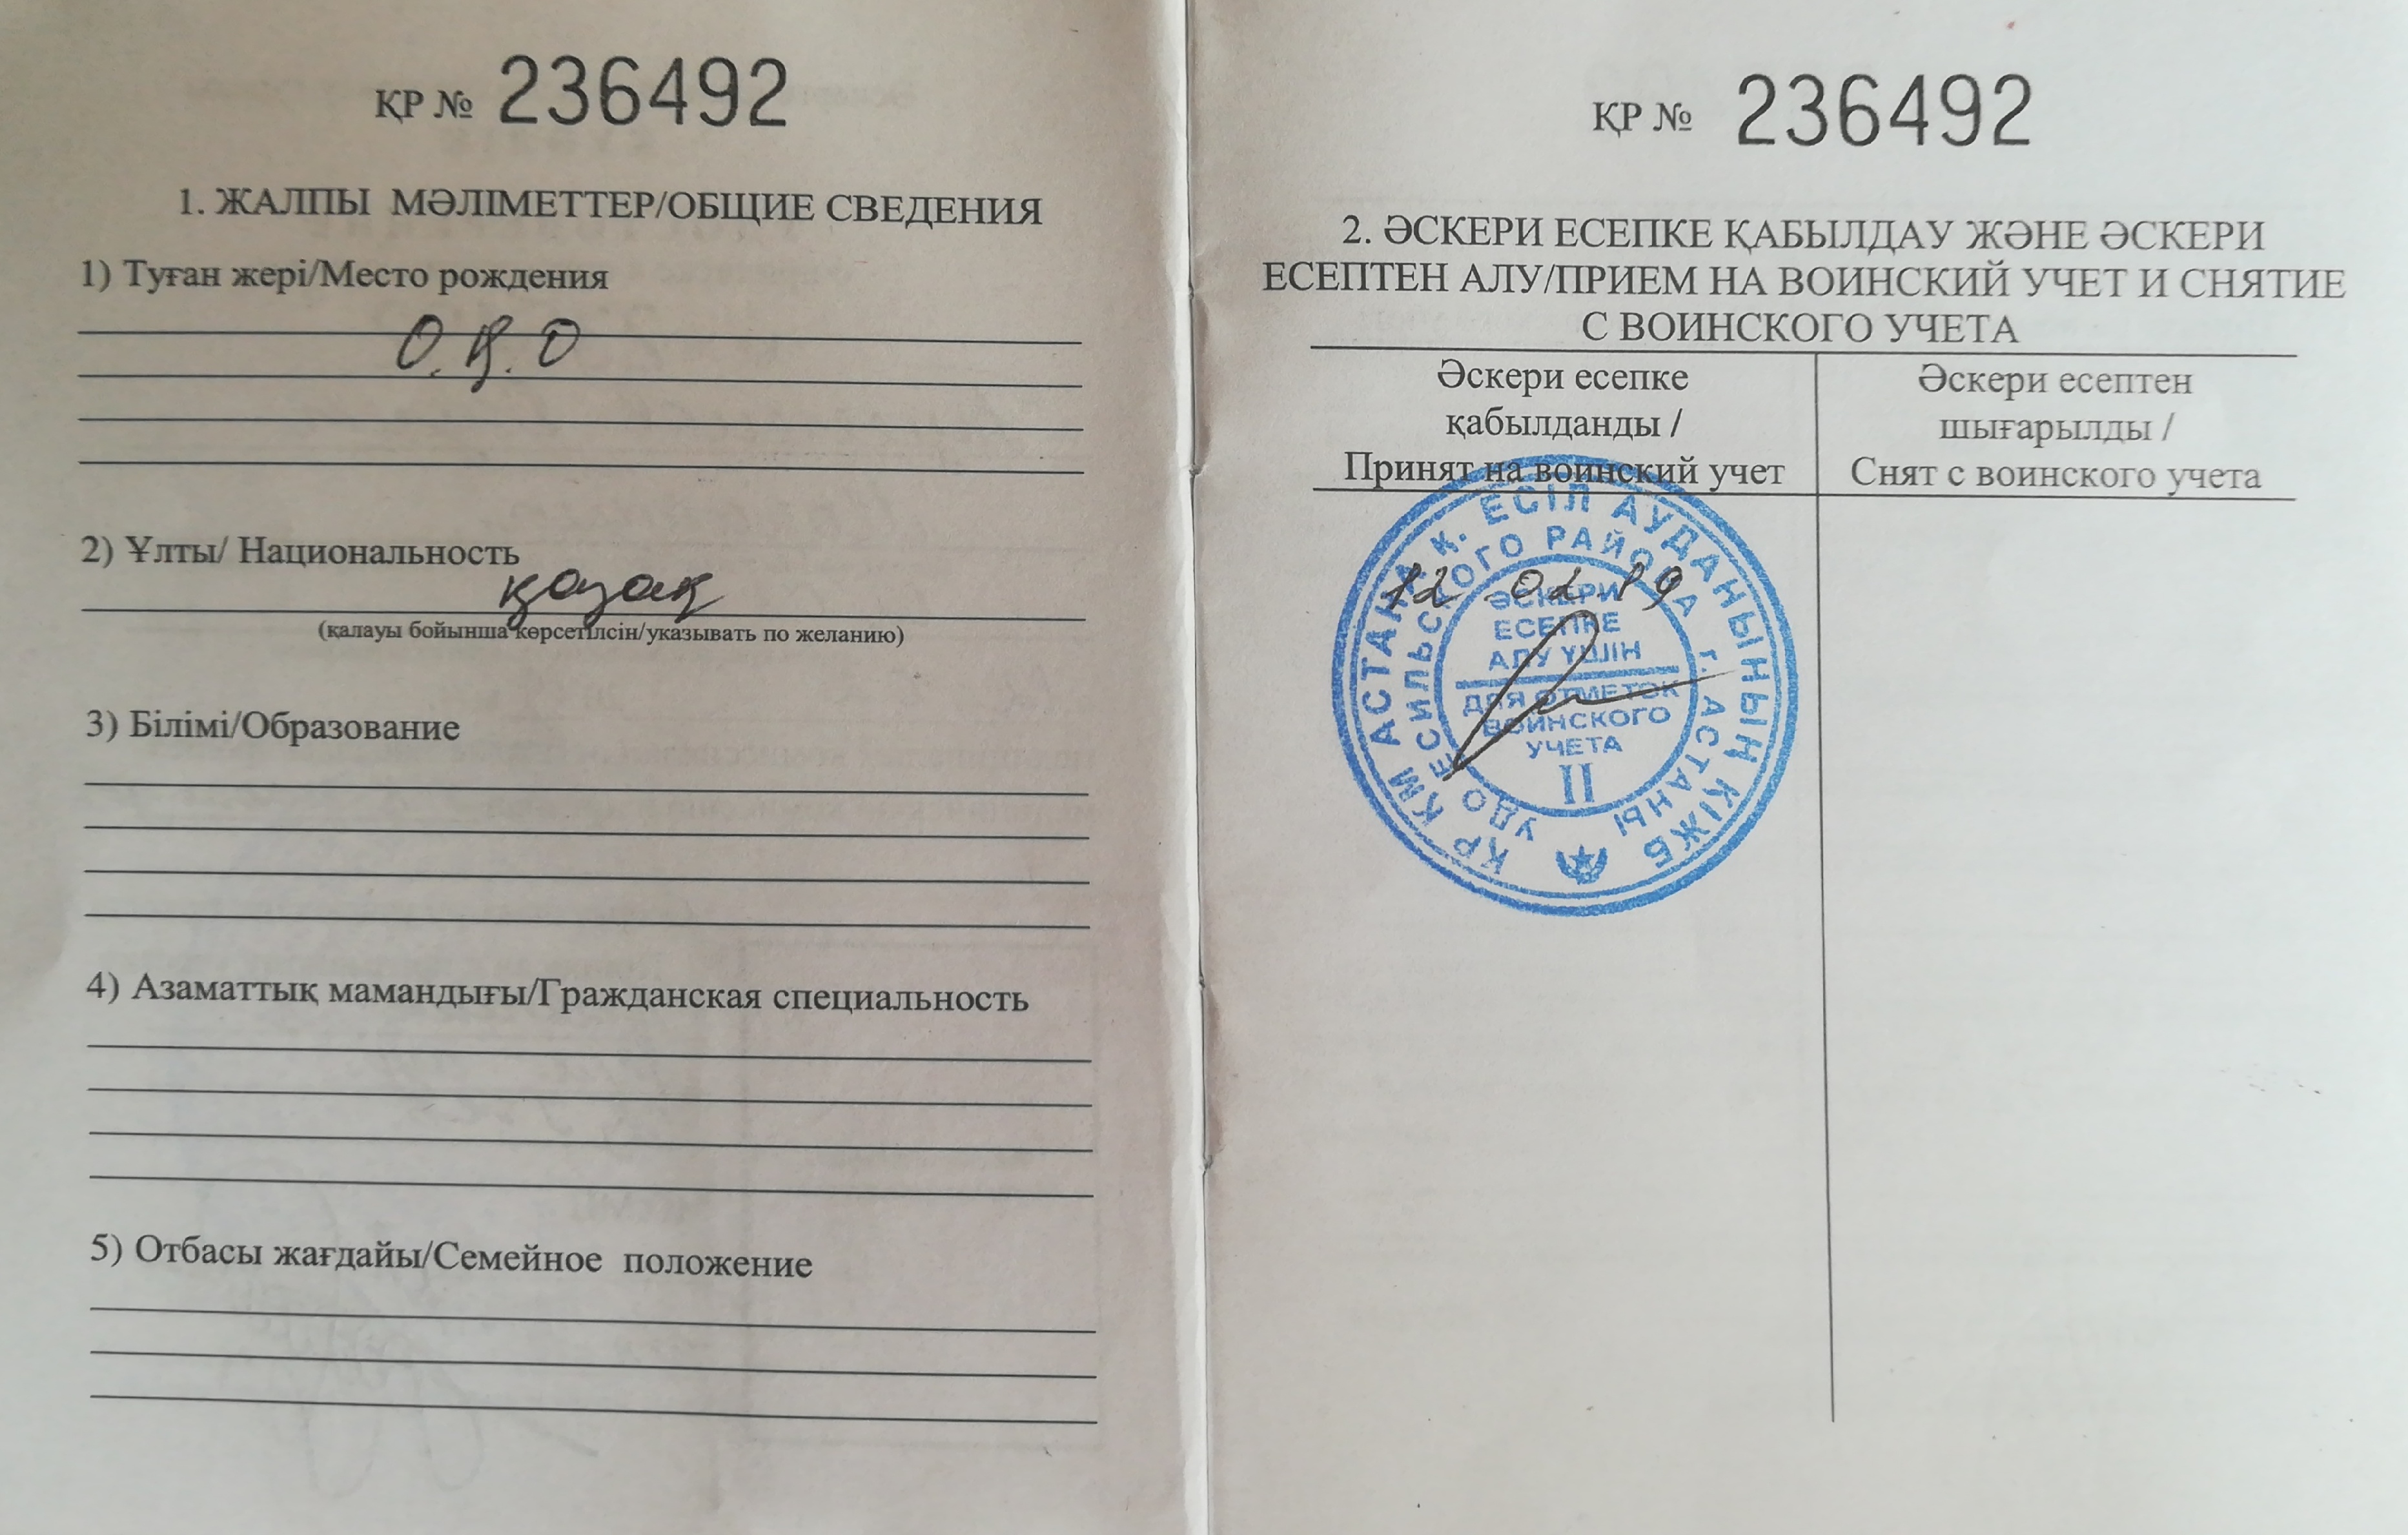 ҚР № 236492
1. ЖАЛПЫ МӘЛІМЕТТЕР/ОБЩИЕ СВЕДЕНИЯ
1) Туған жері/Место рождения
О.Қ.О
2) Ұлты/ Национальность
қазақ
(қалауы бойынша көрсетілсін/указывать по желанию)
3) Білімі/Образование
4) Азаматтық мамандығы/Гражданская специальность
5) Отбасы жағдайы/Семейное положение
ҚР № 236492
2. ӘСКЕРИ ЕСЕПКЕ ҚАБЫЛДАУ ЖӘНЕ ӘСКЕРИ
ЕСЕПТЕН АЛУ/ПРИЕМ НА ВОИНСКИЙ УЧЕТ И СНЯТИЕ
С ВОИНСКОГО УЧЕТА
Әскери есепке
қабылданды /
Принят на воинский учет
Әскери есептен
шығарылды /
Снят с воинского учета
ҚР ҚМ АСТАНА Қ. ЕСІЛ АУДАНЫНЫҢ ҚІЖБ
УДО ЕСИЛЬСКОГО РАЙОНА г. АСТАНЫ
12.02.19
ӘСКЕРИ
ЕСЕПКЕ
АЛУ ҮШІН
ДЛЯ ОТМЕТОК
ВОИНСКОГО
УЧЕТА
II